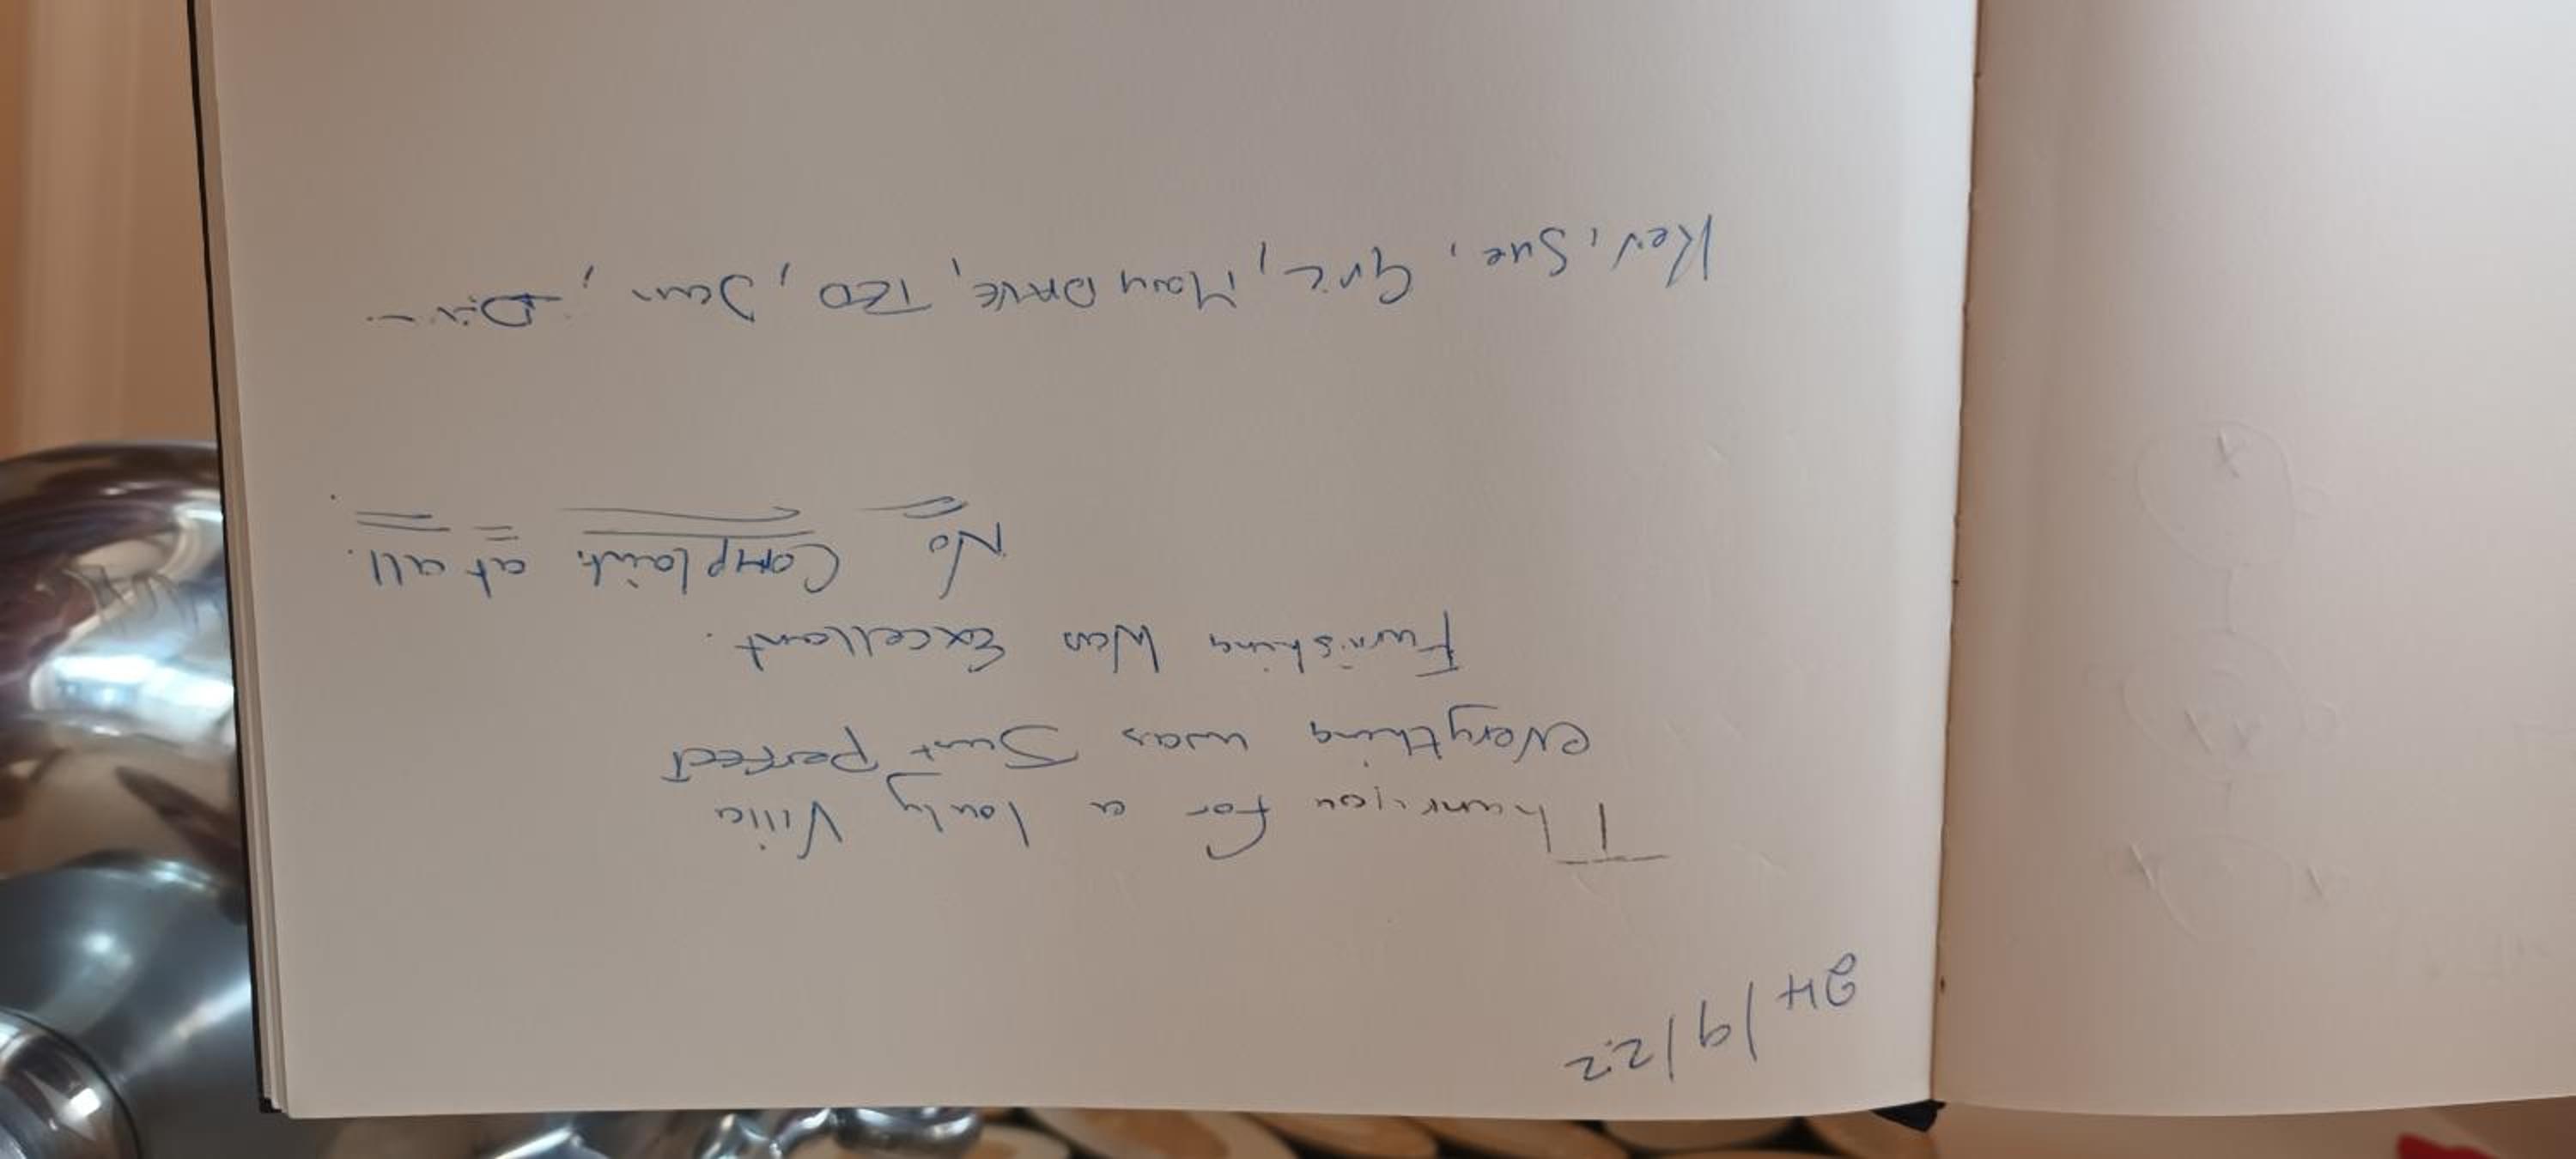 24/9/22
Thank you for a lovly Villa
everything was Just perfect
Furnishing Was Excellant.
No Complaints at all.
Kev, Sue, Mary DAVE, TED, Jean,